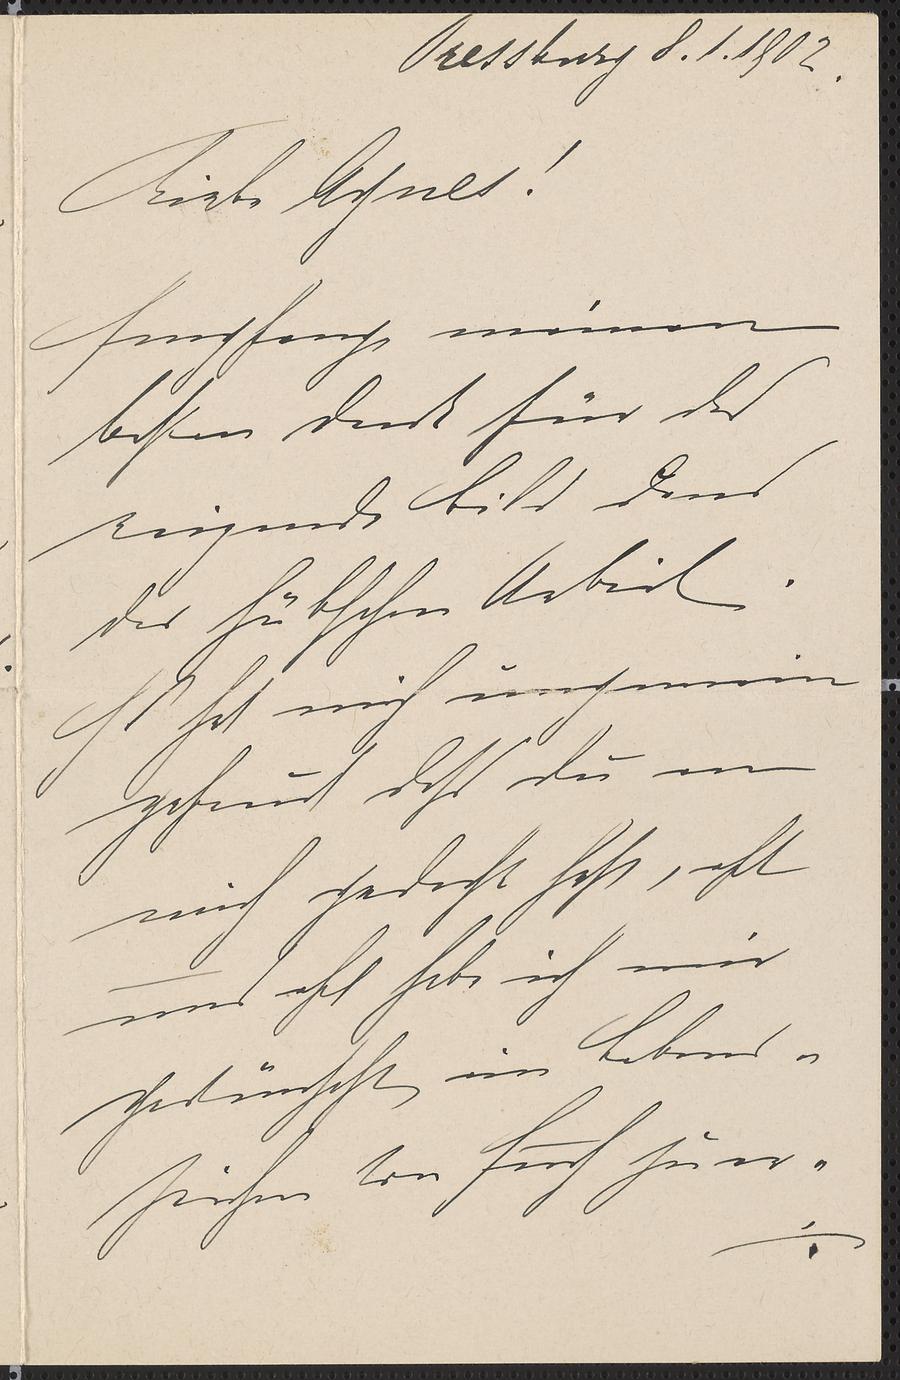 Pressburg 8.1.1902.
Liebe Agnes!
Empfange meinen
besten Dank für das
reizende Bild Deine
der hübschen Arbeit.
Es hat mich ungemein
gefreut daß du an
mich gedacht hast, oft
und oft habe ich mir
gewünscht, ein Lebens-
zeichen von Euch zu er-